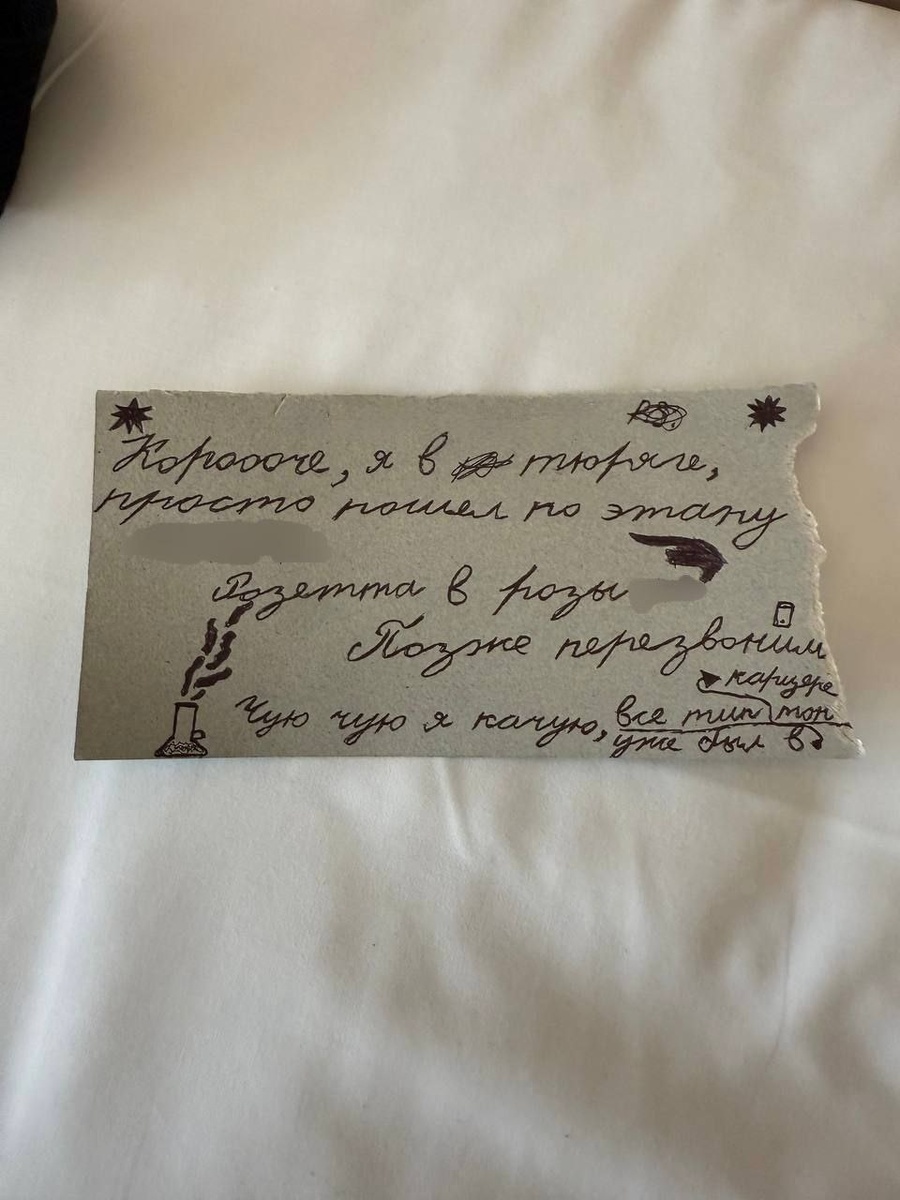 Короооче, я в тюряге,
просто пошел по этапу
Розетта в розы
Позже перезвоним
карцере
Чую чую я качую, все тип топ
уже был в